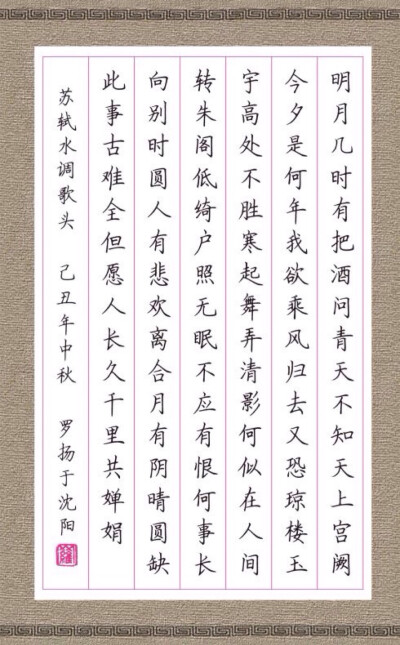 明月几时有把酒问青天不知天上宫阙
今夕是何年我欲乘风归去又恐琼楼玉
宇高处不胜寒起舞弄清影何似在人间
转朱阁低绮户照无眠不应有恨何事长
向别时圆人有悲欢离合月有阴晴圆缺
此事古难全但愿人长久千里共婵娟
苏轼水调歌头 己丑年中秋 罗扬于沈阳